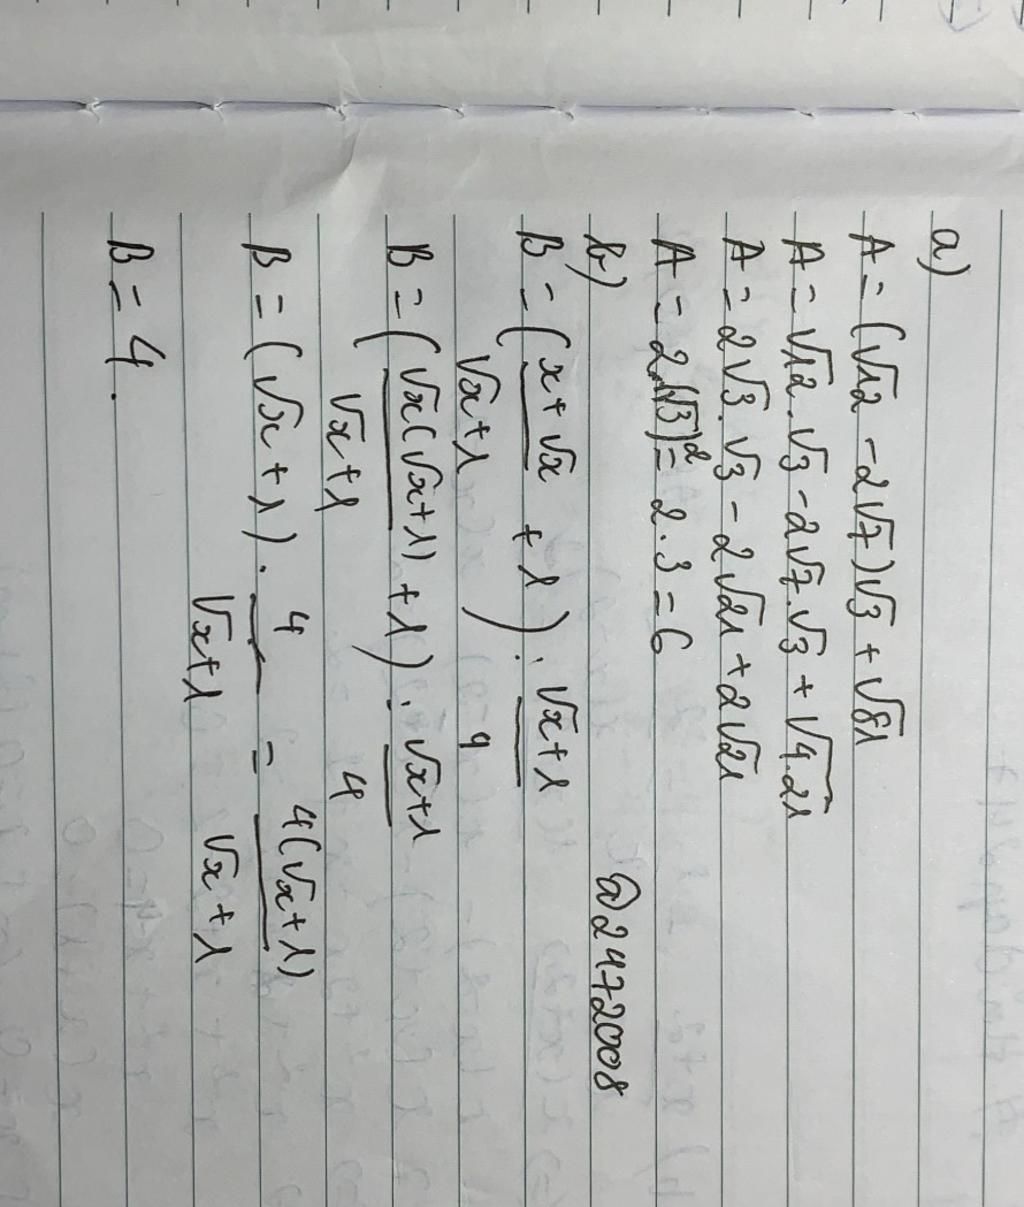 a)
A = (√12 - 2√7)√3 + √81
A = √12.√3 - 2√7.√3 + √4.21
A = 2√3.√3 - 2√21 + 2√21
A = 2.(√3)² = 2.3 = 6
b) @2472008
B = (x+√x / √x+1 + 1) : √x+1 / 4
B = (√x(√x+1) / √x+1 + 1) : √x+1 / 4
B = (√x+1) . 4 / √x+1 = 4(√x+1) / √x+1
B = 4.